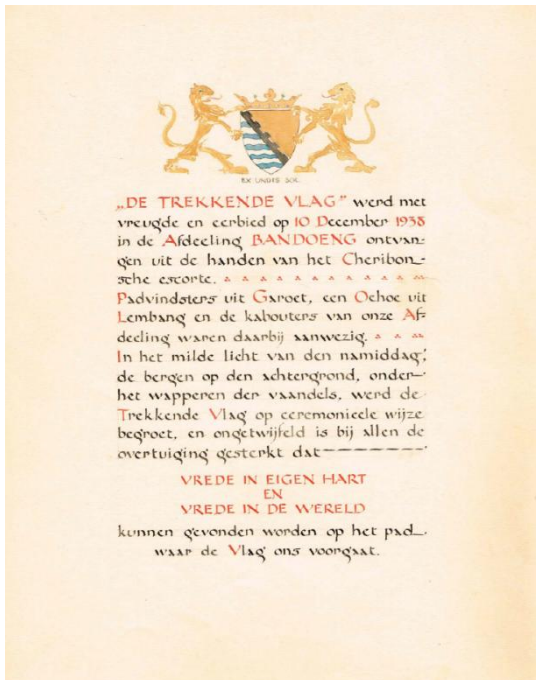 EX UNDIS SOL.
„DE TREKKENDE VLAG” werd met
vreugde en eerbied op 10 December 1938
in de Afdeeling BANDOENG ontvan-
gen uit de handen van het Cheribon-
sche escorte.
Padvindsters uit Garoet, een Oehoe uit
Lembang en de kabouters van onze Af-
deeling waren daarbij aanwezig.
In het milde licht van den namiddag,
de bergen op den achtergrond, onder
het wapperen der vaandels, werd de
Trekkende Vlag op ceremonieele wijze
begroet, en ongetwijfeld is bij allen de
overtuiging gesterkt dat
VREDE IN EIGEN HART
EN
VREDE IN DE WERELD
kunnen gevonden worden op het pad
waar de Vlag ons voorgaat.